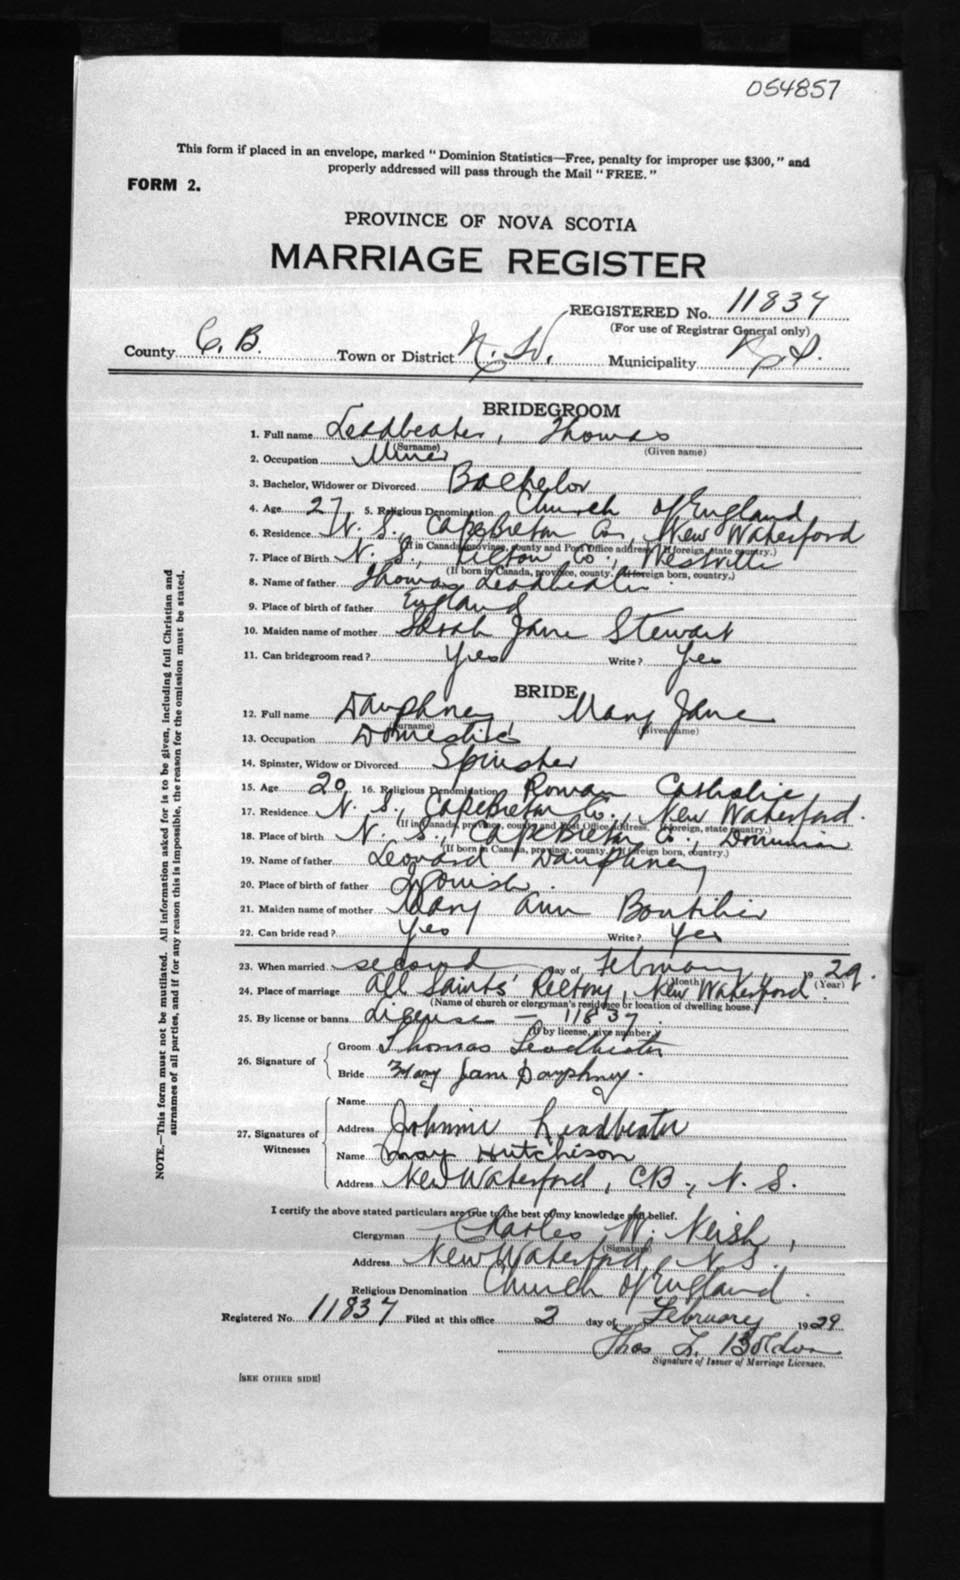 054857
This form if placed in an envelope, marked "Dominion Statistics—Free, penalty for improper use $300," and
properly addressed will pass through the Mail "FREE."
FORM 2.
PROVINCE OF NOVA SCOTIA
MARRIAGE REGISTER
REGISTERED No. 11837
(For use of Registrar General only)
County C. B. Town or District N. W. Municipality
BRIDEGROOM
1. Full name Leadbeater, Thomas
(Surname) (Given name)
2. Occupation Miner
3. Bachelor, Widower or Divorced Bachelor
4. Age 27 5. Religious Denomination Church of England
6. Residence N. S., Cape Breton Co., New Waterford
(If in Canada, province, county and Post Office address. If foreign, state country.)
7. Place of Birth N. S., Co., Westville
(If born in Canada, province, county. If foreign born, country.)
8. Name of father Thomas Leadbeater
9. Place of birth of father England
10. Maiden name of mother Sarah Jane Stewart
11. Can bridegroom read? Yes Write? Yes
BRIDE
12. Full name Dauphney Mary Jane
(Surname) (Given name)
13. Occupation Domestic
14. Spinster, Widow or Divorced Spinster
15. Age 20 16. Religious Denomination Roman Catholic
17. Residence N. S., Cape Breton Co., New Waterford.
(If in Canada, province, county and Post Office address. If foreign, state country.)
18. Place of birth N. S., Cape Breton Co., Dominion
(If born in Canada, province, county. If foreign born, country.)
19. Name of father Leonard Dauphney
20. Place of birth of father
21. Maiden name of mother Mary Ann Boutilier
22. Can bride read? Yes Write? Yes
23. When married second day of February 1929.
(Month) (Year)
24. Place of marriage All Saints' Rectory, New Waterford.
(Name of church or clergyman's residence or location of dwelling house.)
25. By license or banns License — 11837.
(If by license, give number)
26. Signature of Groom Thomas Leadbeater
Bride Mary Jane Dauphney.
27. Signatures of Witnesses
Name
Address Johnnie Leadbeater
Name May Hutchison
Address New Waterford, C.B., N. S.
I certify the above stated particulars are true to the best of my knowledge and belief.
Clergyman Charles W. Neish,
(Signature)
Address New Waterford, N. S.
Religious Denomination Church of England.
Registered No. 11837 Filed at this office 2 day of February 1929
Thos L.
Signature of Issuer of Marriage Licenses.
[SEE OTHER SIDE]
NOTE.—This form must not be mutilated. All information asked for is to be given, including full Christian and
surnames of all parties, and if for any reason this is impossible, the reason for the omission must be stated.